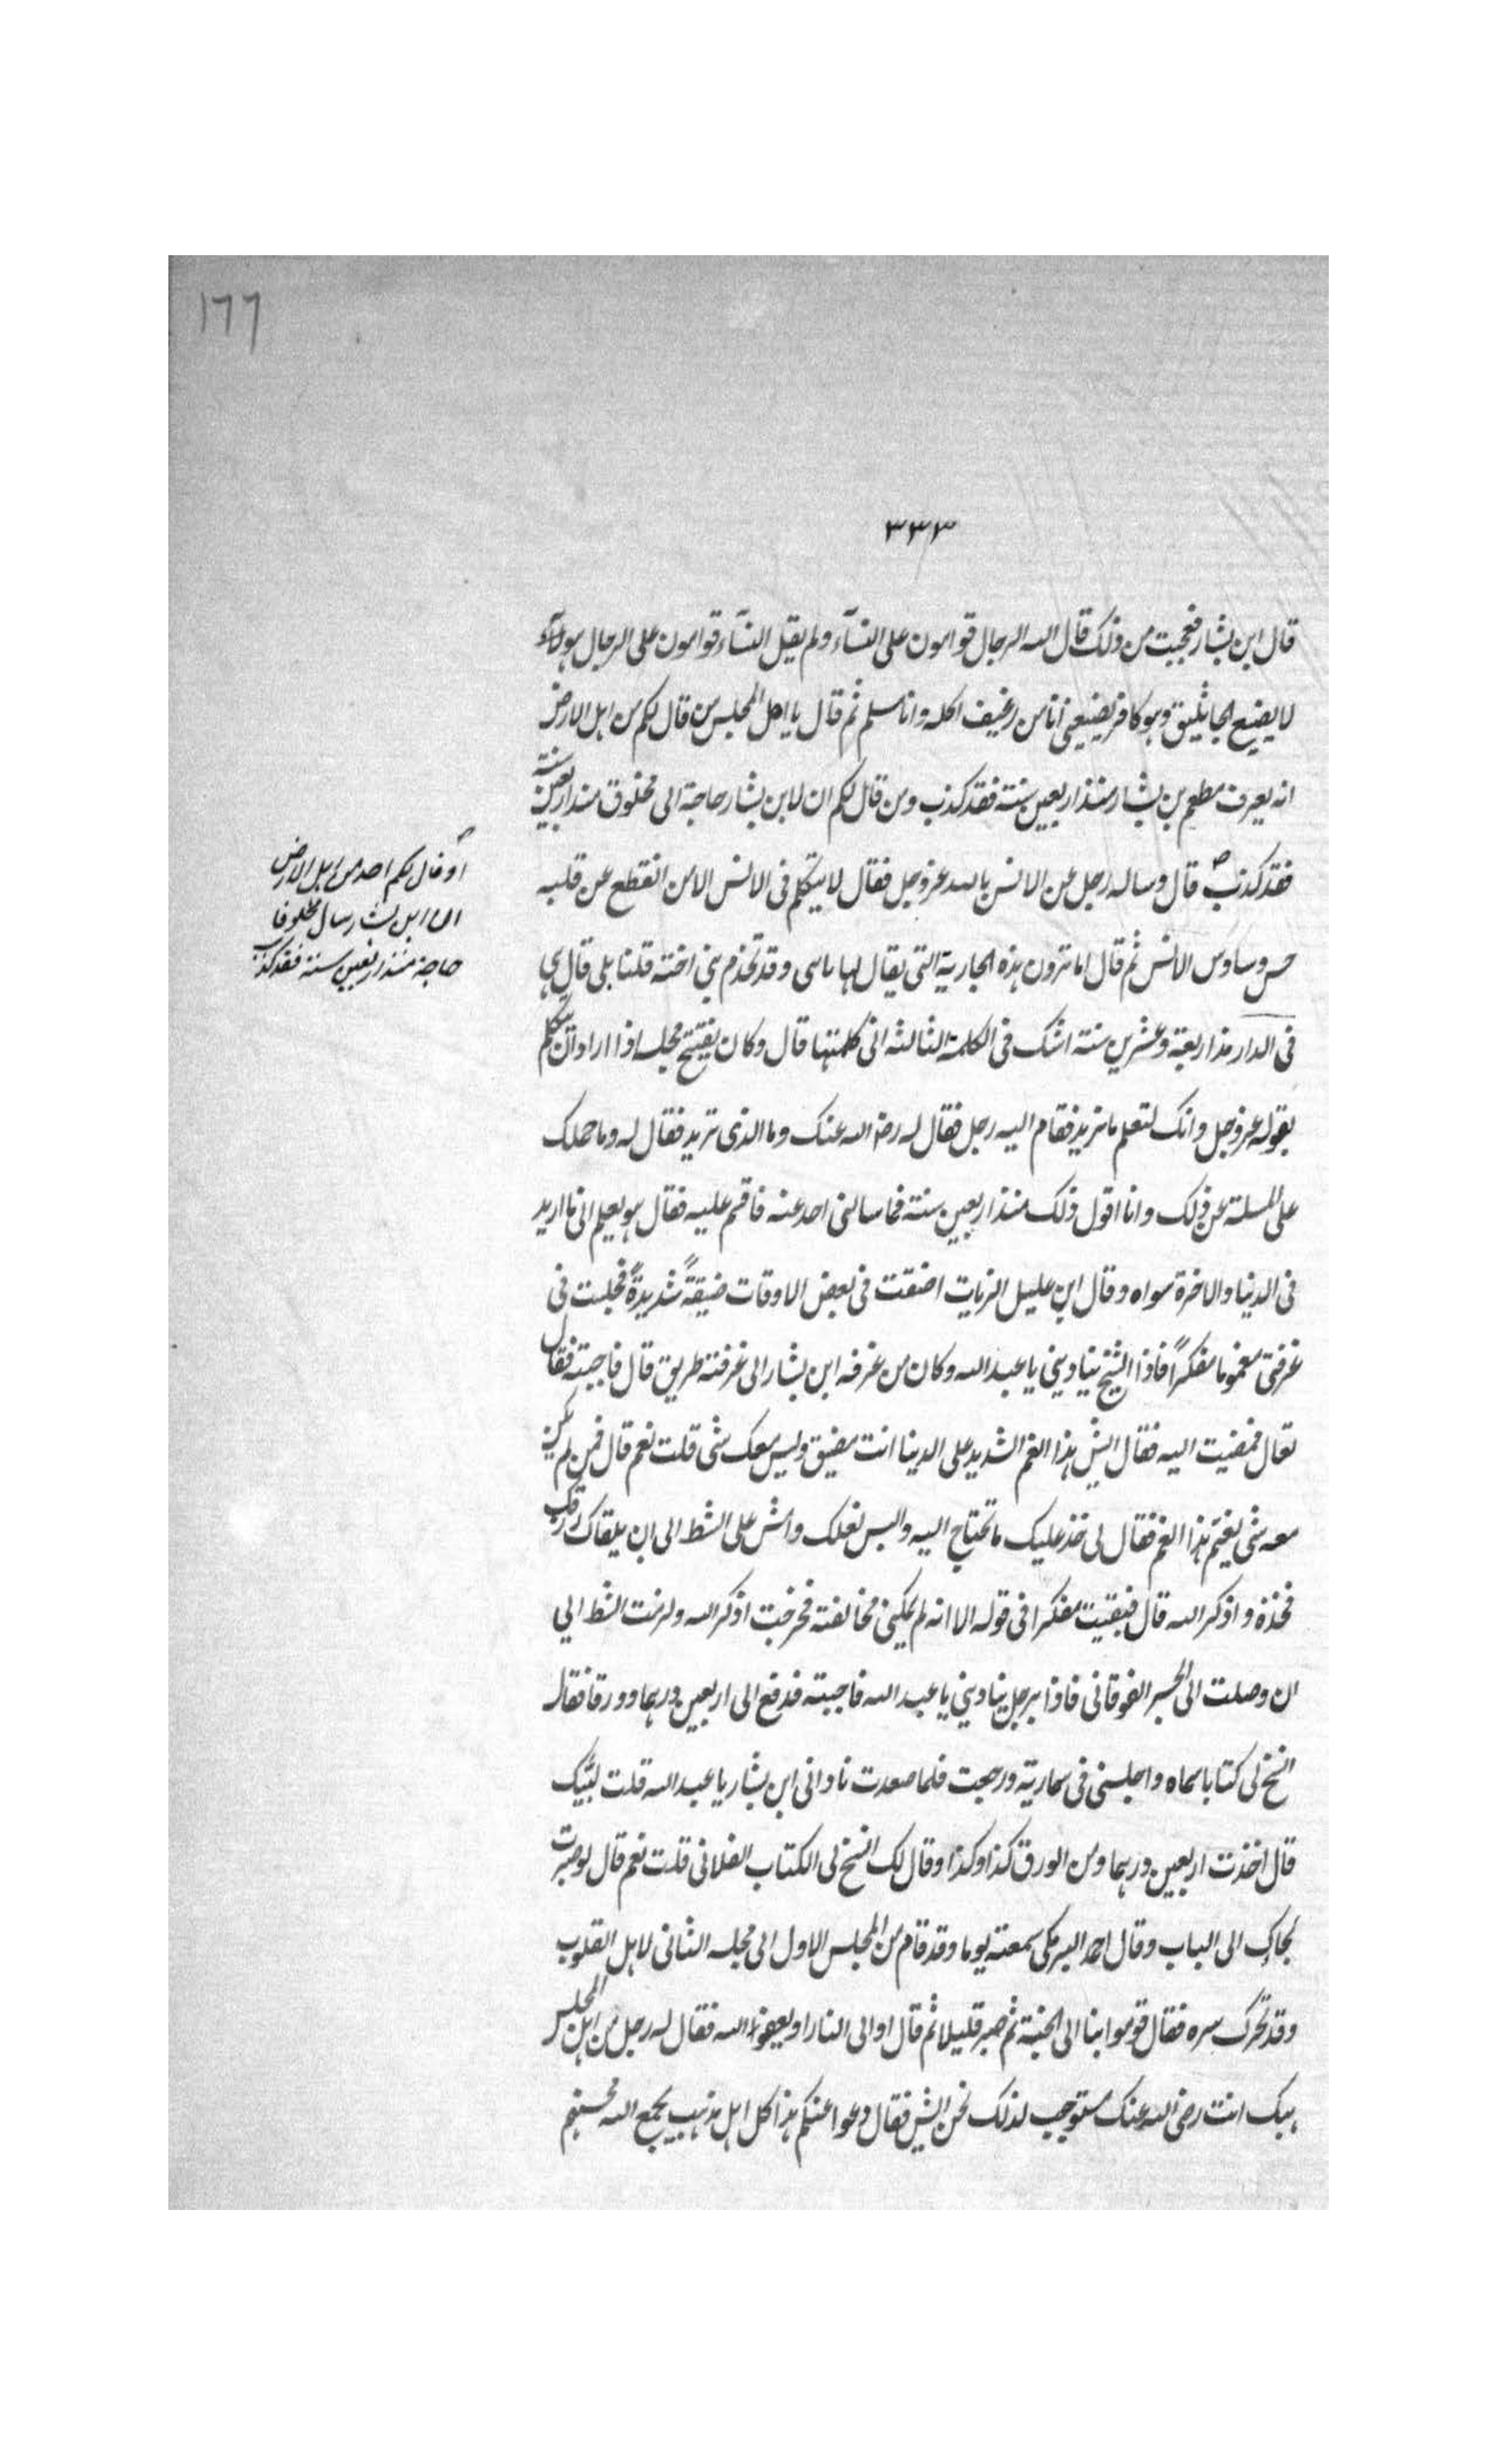 ١٦٦
٣٣٣
قال ابن بشار فعجبت من ذلك قال الله الرجال قوامون على النسآء ولم يقل النسآء قوامون على الرجال هولآء
لا يضيع الجاثليق وهو كافر يضيعني انا من رغيف اكله وانا مسلم ثم قال يا اهل المجلس من قال لكم من اهل الارض
انه يعرف مطعم بن بشار منذ اربعين سنة فقد كذب ومن قال لكم ان لابن بشار حاجة الى مخلوق منذ اربعين سنة
فقد كذب قال وساله رجل عن الانس بالله عز وجل فقال لا يتكلم في الانس الا من انقطع عن قلبه
او قال لكم احد من اهل الارض
ان ابن بشار سال مخلوقا
حاجة منذ اربعين سنة فقد كذب
حس وساوس الانس ثم قال اما ترون هذه الجارية التي يقال لها ماسى وقد تخدم بني اخته قلنا بلى قال لي
في الدار مذ اربعة وعشرين سنة اشك في الكلمة الثالثة اني كلمتها قال وكان يفتتح مجلسه اذا اراد ان يتكلم
بقوله عز وجل وانك لتعلم ما نريد فقام اليه رجل فقال له رضي الله عنك وما الذي تريد فقال له وما حملك
على المسلة عن ذلك وانا اقول ذلك منذ اربعين سنة فما سالني احد عنه فاقسم عليه فقال هو يعلم اني ما اريد
في الدنيا والاخرة سواه وقال ابن عليل الزيات اضقت في بعض الاوقات ضيقةً شديدةً فجلست في
غرفتي مغموما مفكراً فاذا الشيخ يناديني يا عبد الله وكان من غرفه ابن بشار الى غرفته طريق قال فاجبته فقال
تعال فمضيت اليه فقال ايش هذا الغم الشديد على الدنيا انت مضيق وليس معك شى قلت نعم قال فمن لم يكن
معه شى يغتم هذا الغم فقال لي خذ عليك ما تحتاج اليه والبس نعلك وامش على الشط الى ان يلقاك رزقك
فخذه واذكر الله قال فبقيت مفكرا في قوله الا انه لم يمكني مخالفته فخرجت اذكر الله ولزمت الشط الي
ان وصلت الى الجسر الفوقاني فاذا برجل يناديني يا عبد الله فاجبته فدفع الى اربعين درهما وورقا فقال
انسخ لي كتابا سماه واجلسني في سمارية ورجعت فلما صعدت ناداني ابن بشار يا عبد الله قلت لبّيك
قال اخذت اربعين درهما ومن الورق كذا وكذا وقال لك انسخ لي الكتاب الفلاني قلت نعم قال لو صبرت
لجاءك الى الباب وقال احمد البرمكي سمعته يوما وقد قام من المجلس الاول الى مجلسه الثاني لاهل القلوب
وقد تحرك سره فقال قوموا بنا الى الجنة ثم صبر قليلا ثم قال او الى النار او يعفو الله فقال له رجل من اهل المجلس
هبك انت رضي الله عنك مستوجب لذلك نحن ايش فقال دعوا عنكم هذا كل اهل مذهب يجمع الله محسنهم